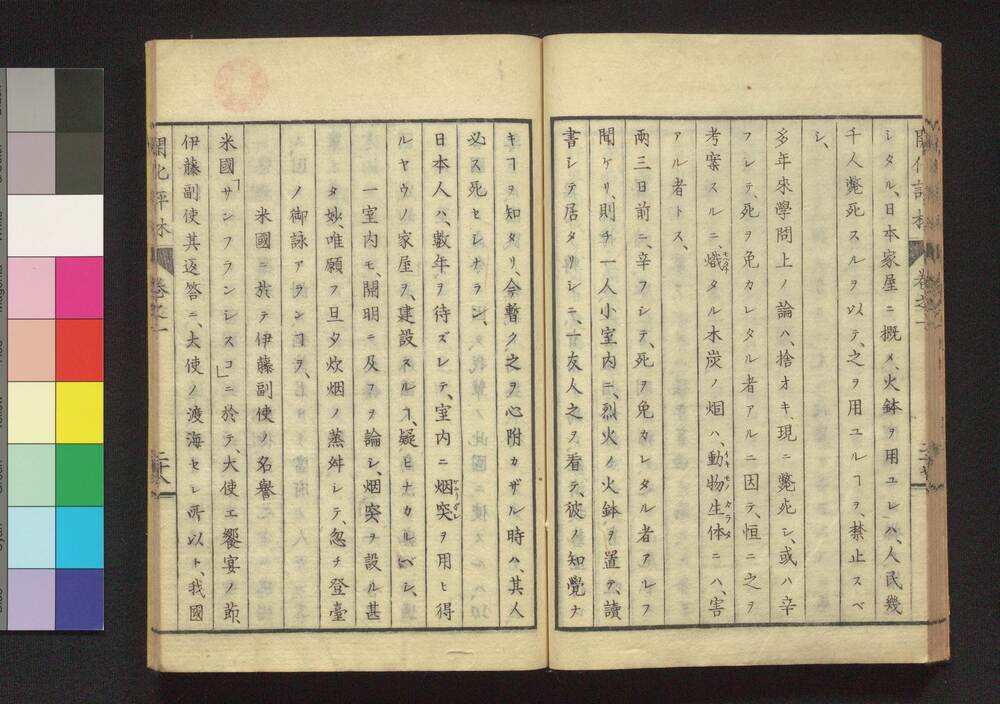 シタル、日本家屋ニ概メ、火鉢ヲ用ユレハ、人民幾
千人斃死スルヲ以テ、之ヲ用ユルヿヲ、禁止スベ
シ、
多年来學問上ノ論ハ、捨オキ、現ニ斃死シ、或ハ辛
フシテ、死ヲ免カレタル者アルニ因テ、恒ニ之ヲ
考案スルニ、熾タル木炭ノ烟ハ、動物生体ニハ、害
アル者トス、
兩三日前ニ、辛フシテ、死ヲ免カレタル者アレフ
聞ケリ、則チ一人小室内ニ、烈火ノ火鉢ヲ置テ、讀
書シテ居タリシニ、一友人之ヲ看テ、彼ノ知覺ナ
キヿヲ知タリ、今暫ク之ヲ心附カザル時ハ、其人
必ス死セシナラン、
日本人ハ、數年ヲ待ズレテ、室内ニ烟突ヲ用ヒ得
ルヤウノ家屋ヲ、建設スルヿ、疑ヒナカルベシ、
一室内モ、開明ニ及フヲ論シ、烟突ヲ設ル甚
タ妙、唯願フ旦夕炊烟ノ蒸舛シテ、忽チ登臺
ノ御詠アランヿヲ、
米國ニ於テ伊藤副使ノ名譽
米國「サンフランシスコ」ニ於テ、大使エ饗宴ノ節、
伊藤副使其返答ニ、大使ノ渡海セシ所以ト、我國
開化評林 卷之一 二十八